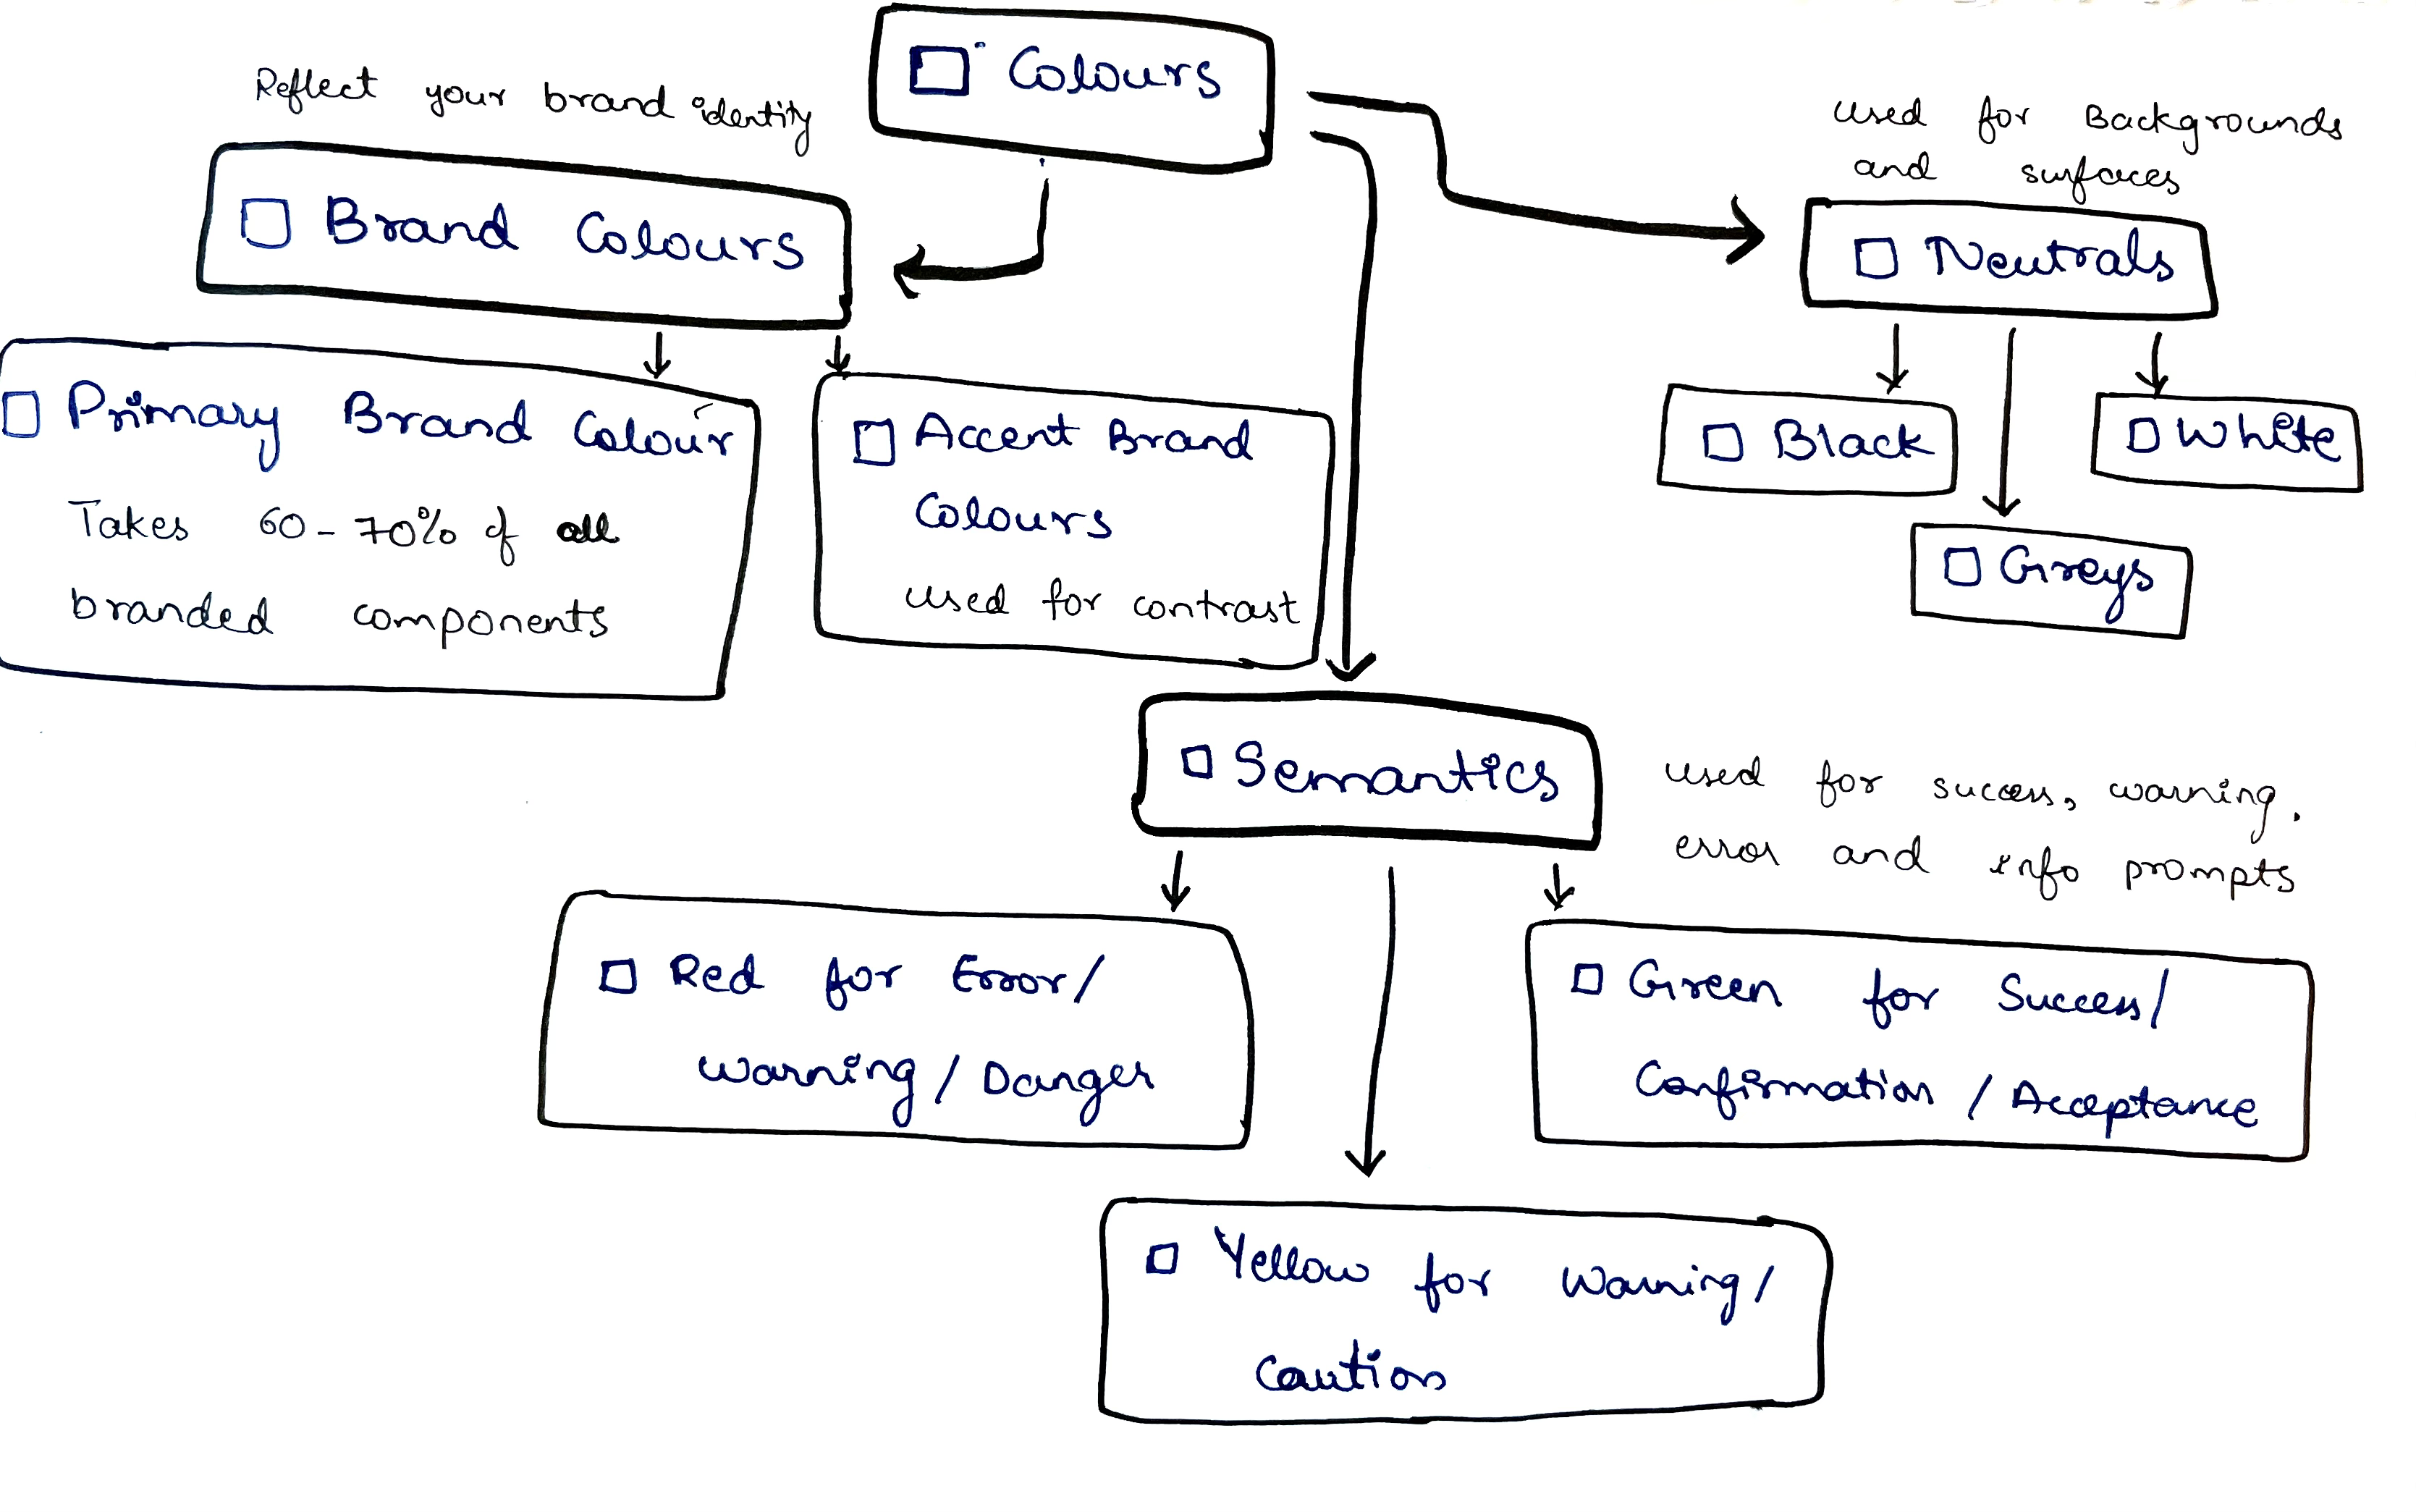 Colours
Reflect your brand identity
Brand Colours
Primary Brand Colour
Takes 60-70% of all
branded components
Accent Brand
Colours
used for contrast
used for Backgrounds
and surfaces
Neutrals
Black
White
Greys
Semantics
used for success, warning,
error and info prompts
Red for Error/
Warning/Danger
Green for Success/
Confirmation/Acceptance
Yellow for Warning/
Caution